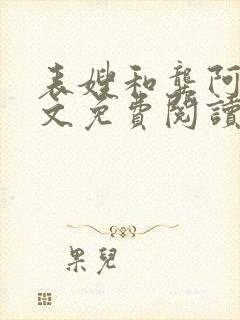 表嫂和龚阿
文免費閱讀
果兒